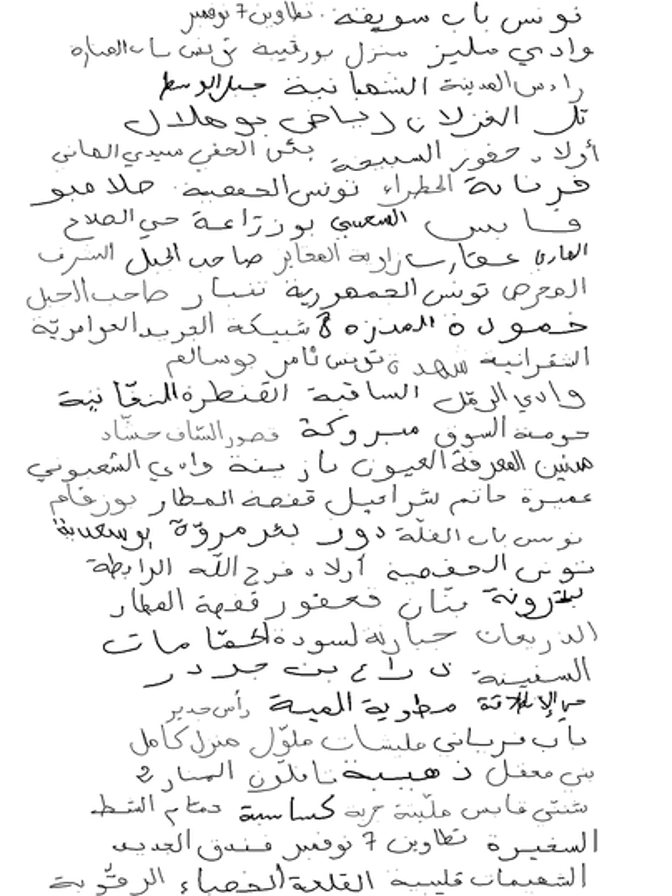 تونس باب سويقة تطاوين 7 نوفمبر
وادي مليز منزل بورقيبة تونس باب المنارة
رادس المدينة الشعبانية جبل الوسط
تل الغزلان رياض بوهلال
أولاد حفوز السبيخة بئر الحفي سيدي الهاني
فرنانة الخطراء تونس الحفصية صلامبو
قابس بوزراعة حي الصلاح
عقارب زاوية المعايز صاحب الجبل الشرف
تونس الجمهورية ننبار صاحب الجبل
حمودة المنزه 8 شبيكة الجريد العوامرية
الشقرانية تونس ثامر بوسالم
وادي الرمل الساقية القنطرة النقانية
حومة السوق مبروكة قصور الساف حشاد
مدنين المعرفة العيون بازينة وادي الشعبوني
عميرة حاتم شراحيل قفصة المطار بورقام
تونس باب الفلة دوز بئر مروة
تونس الحفصية أولاد فرج الله الرابطة
بتان فحفور قفصة المطار
الذريعات حبارية لسودة الحمامات
السفينة ذراع بن جدر
مطوية المية رأس جدير
باب قرباني مليشات ملول منزل كامل
بني معقل ذهيبة نابلون المنار 2
شنني قابس ملينة جربة كساسبة حمام الشط
الصغيرة تطاوين 7 نوفمبر فندق الجديد
الشعيمات قليبية القلعة الخصباء الرقوبة